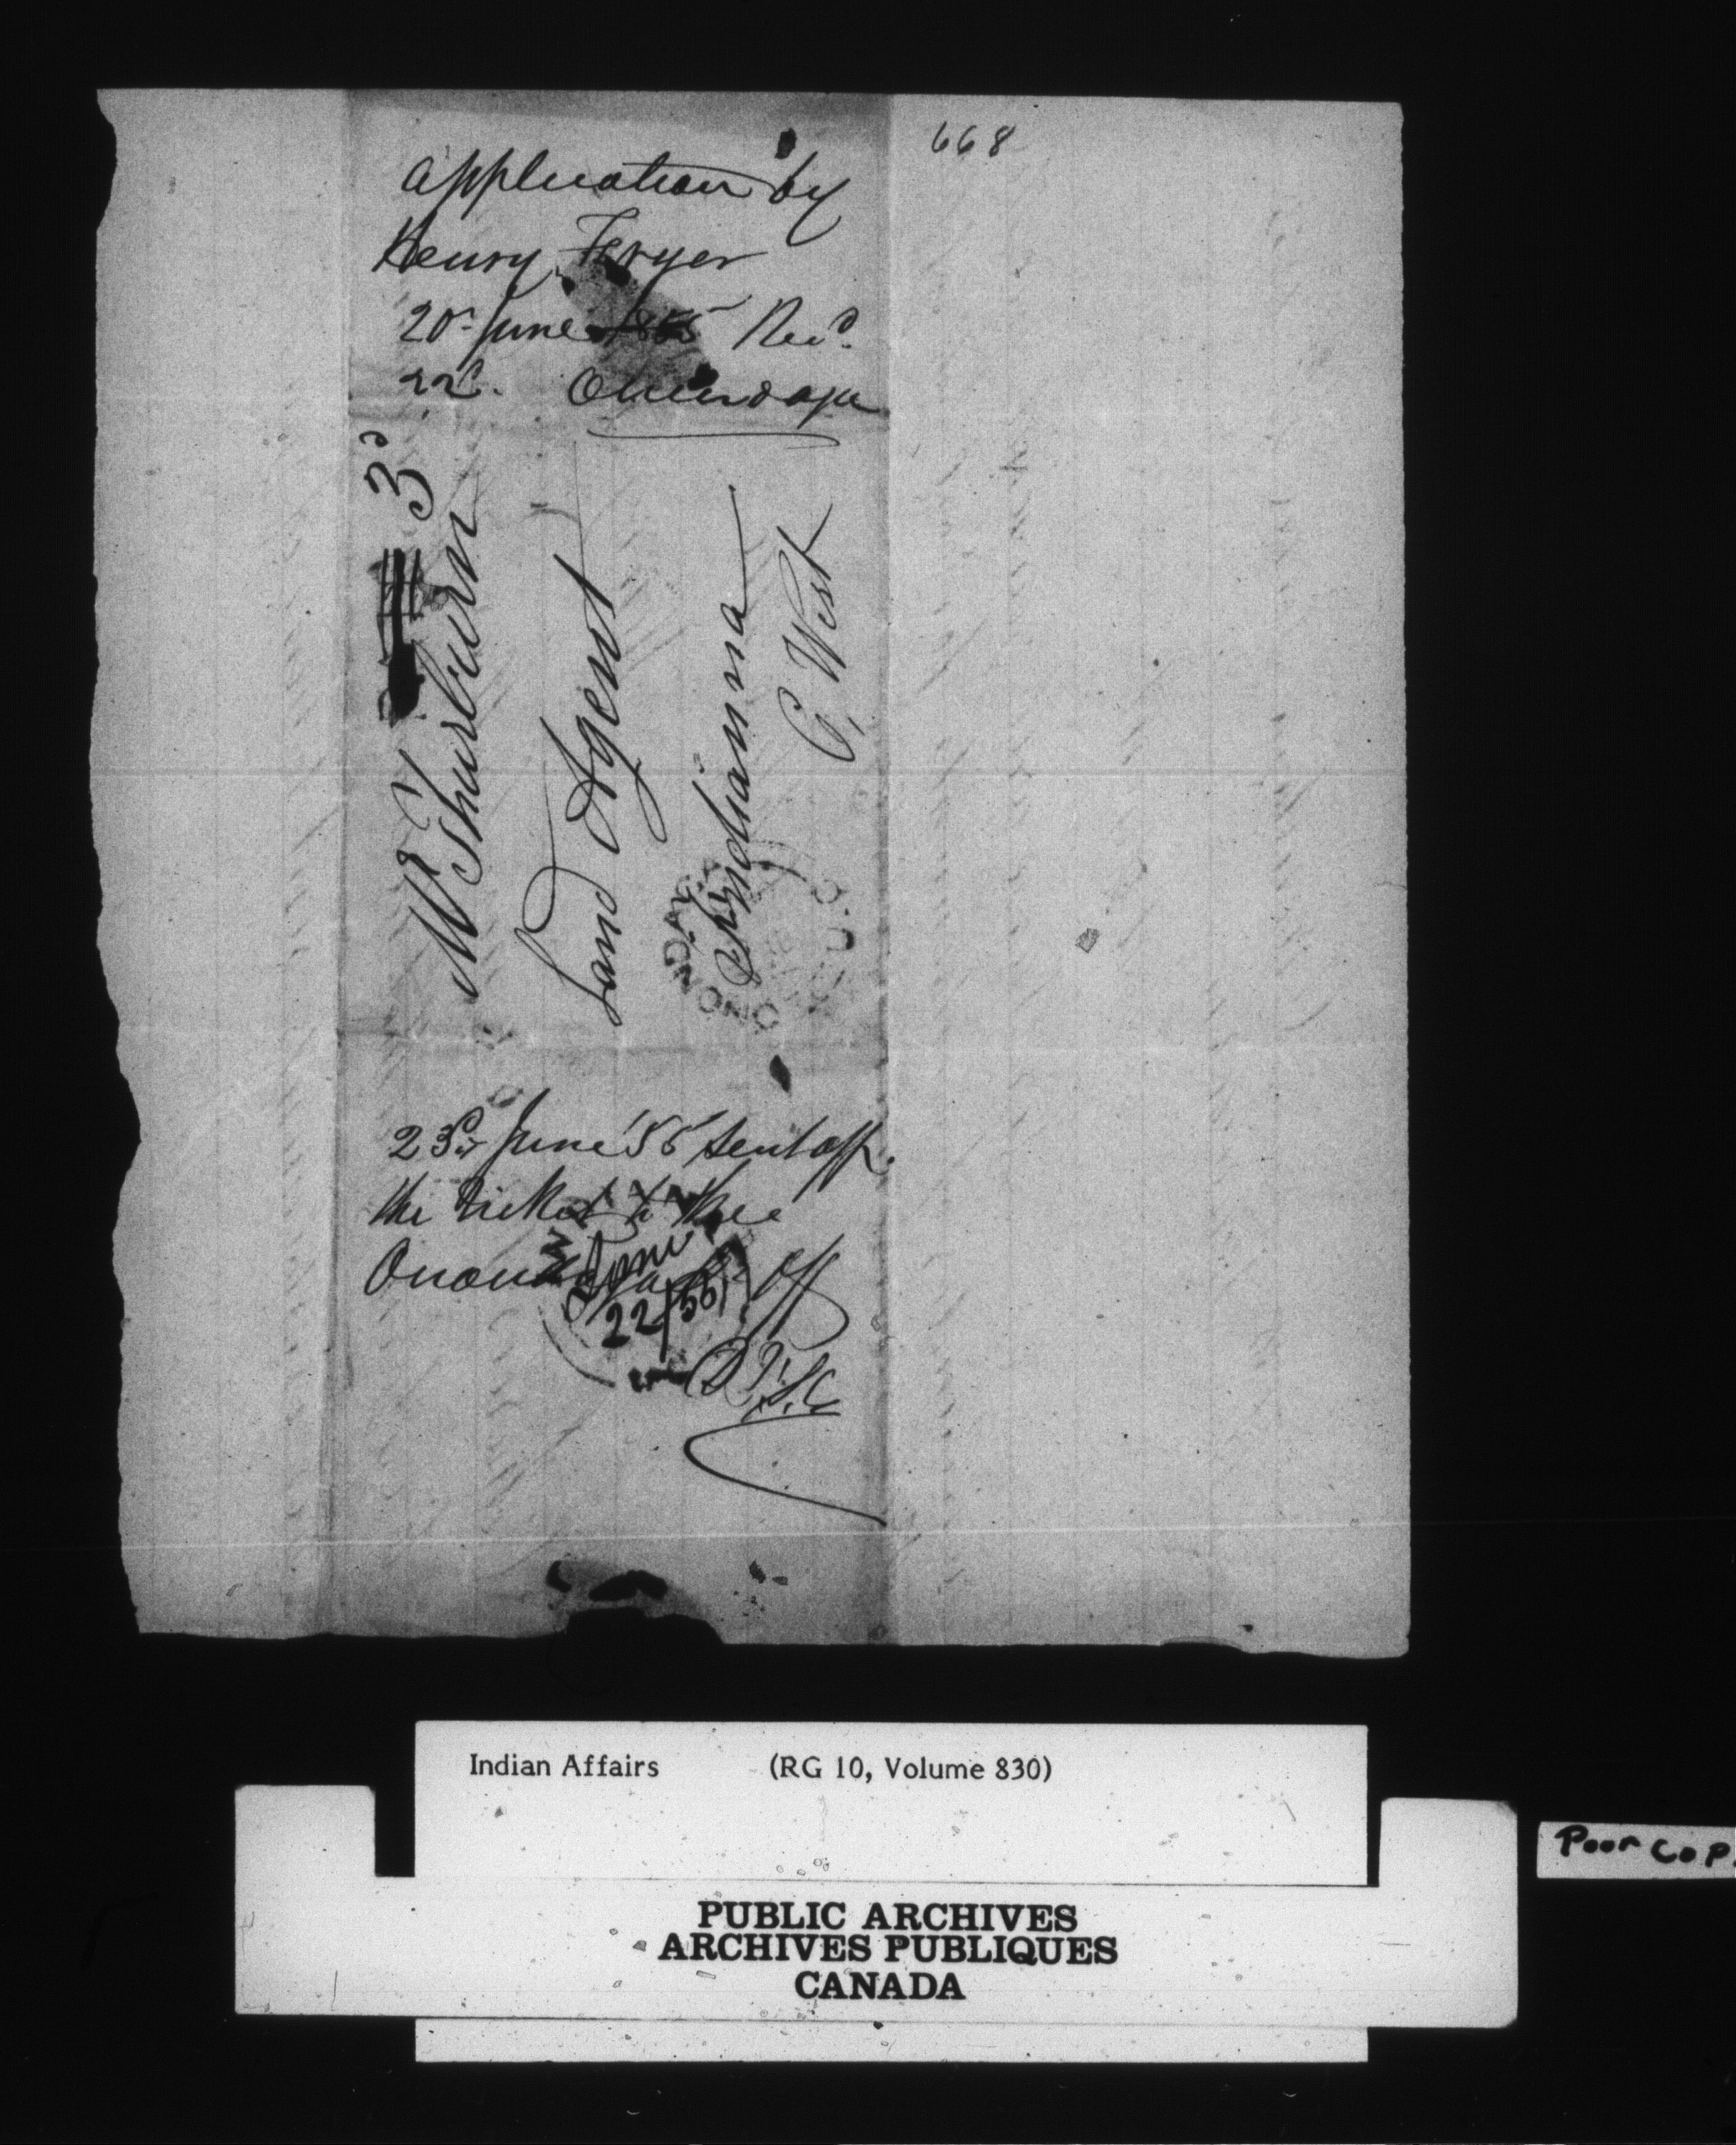 668
Application by
Henry Fryer
20th June 1855 Recd.
22d. Onondaga
3d
Mr Thurburn
Land Agent
Indianna
C, West
ONONDAGA
U.C.
23rd June '55 sent off
the ticket to the
Onondaga P. Off
D.T.
Indiana
June
22/55
Indian Affairs (RG 10, Volume 830)
PUBLIC ARCHIVES
ARCHIVES PUBLIQUES
CANADA
Poor Cop